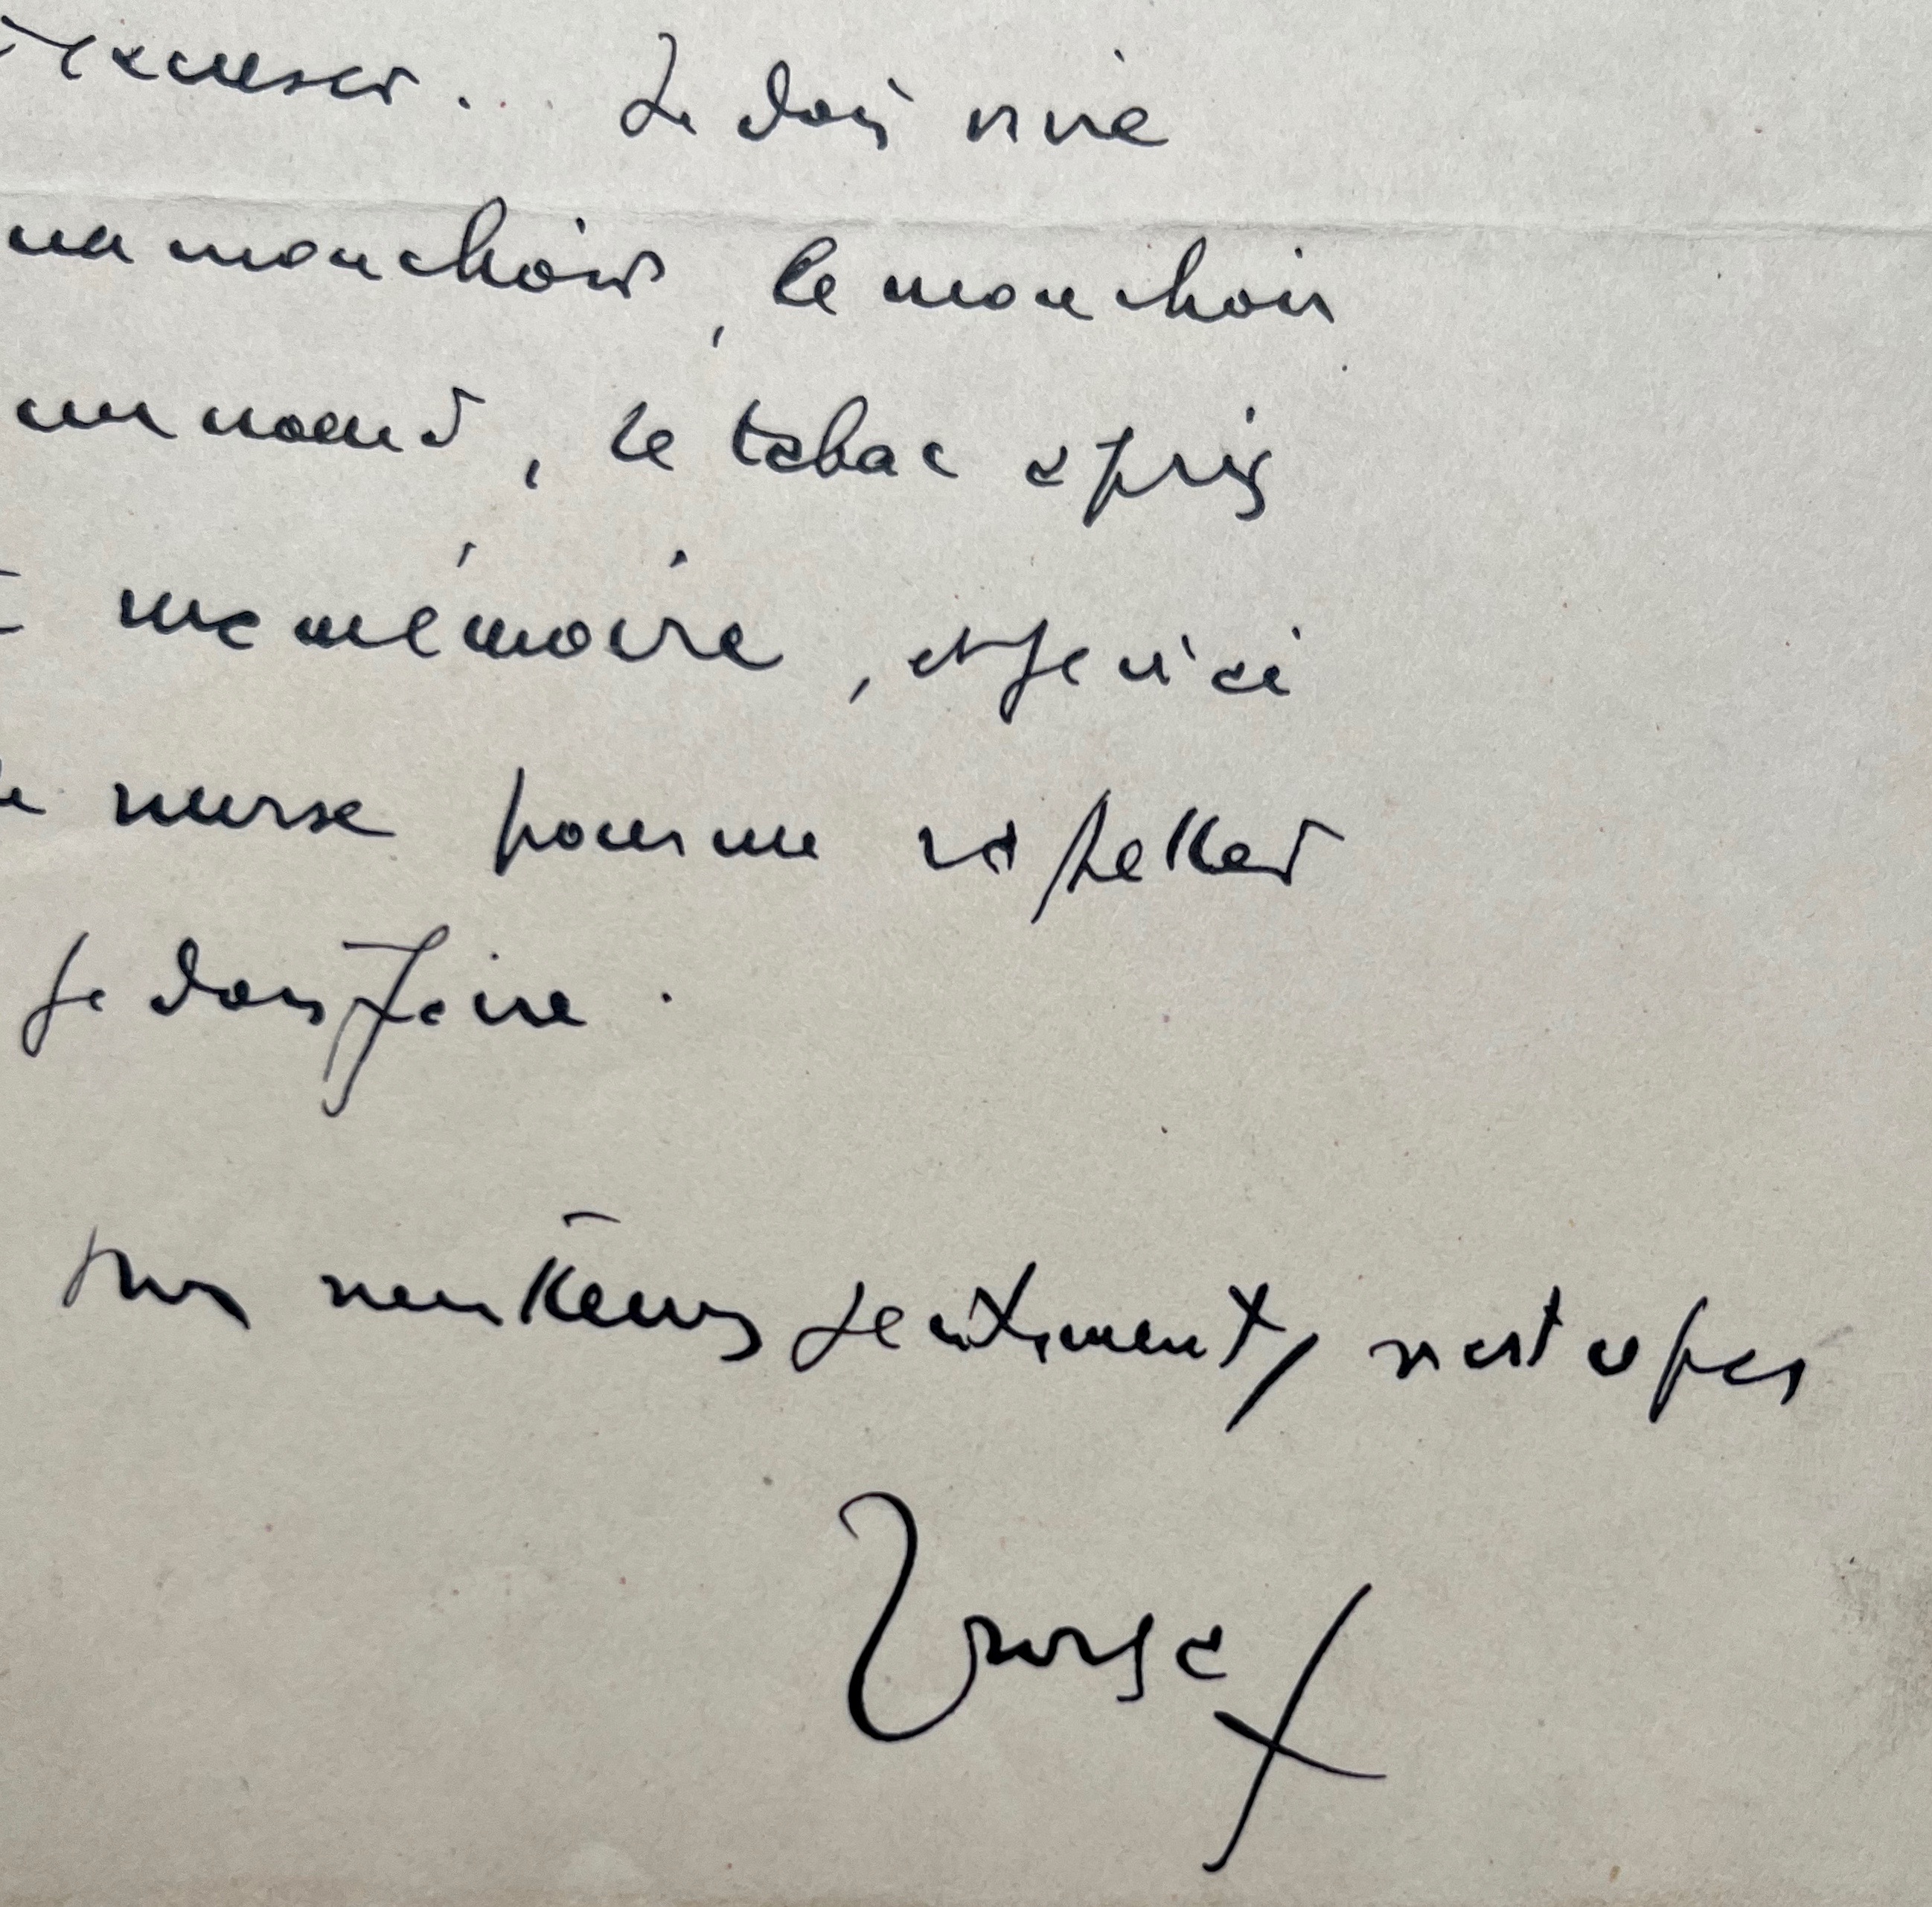 excuser... Je dois vivre
un mouchoir, le mouchoir
un noeud, le tabac a pris
ma mémoire, et je n'ai
nurse pour me rappeler
je dois faire.
meilleurs sentiments, n'est ce pas